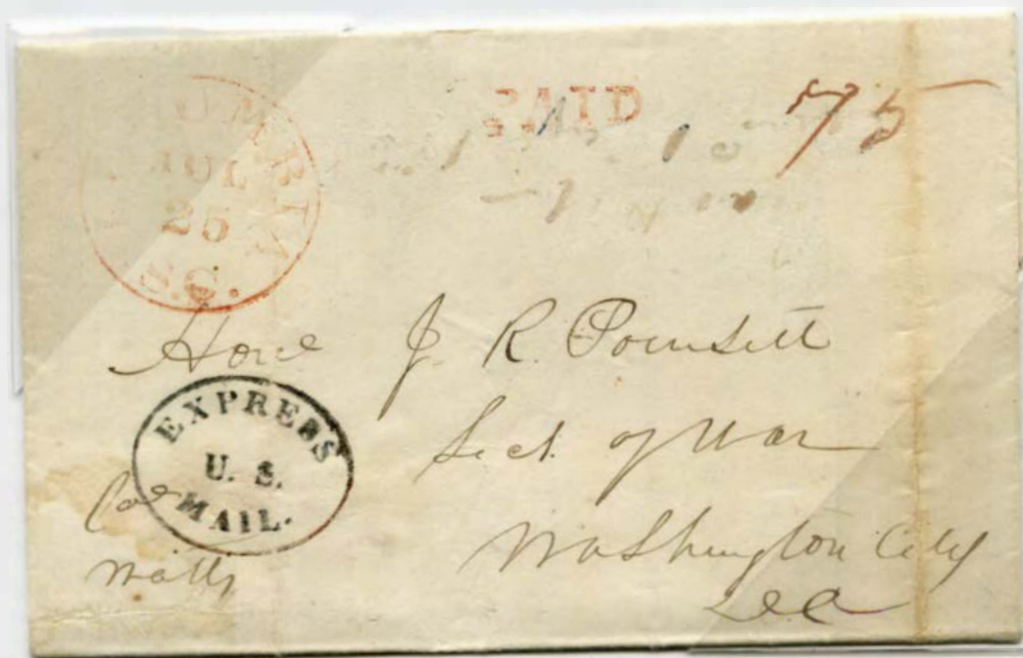 COLUMBIA
JUL
25
S.C.
PAID
75
J. R. Poinsett
Sect. of War
Washington City
D.C.
EXPRESS
U. S.
MAIL.